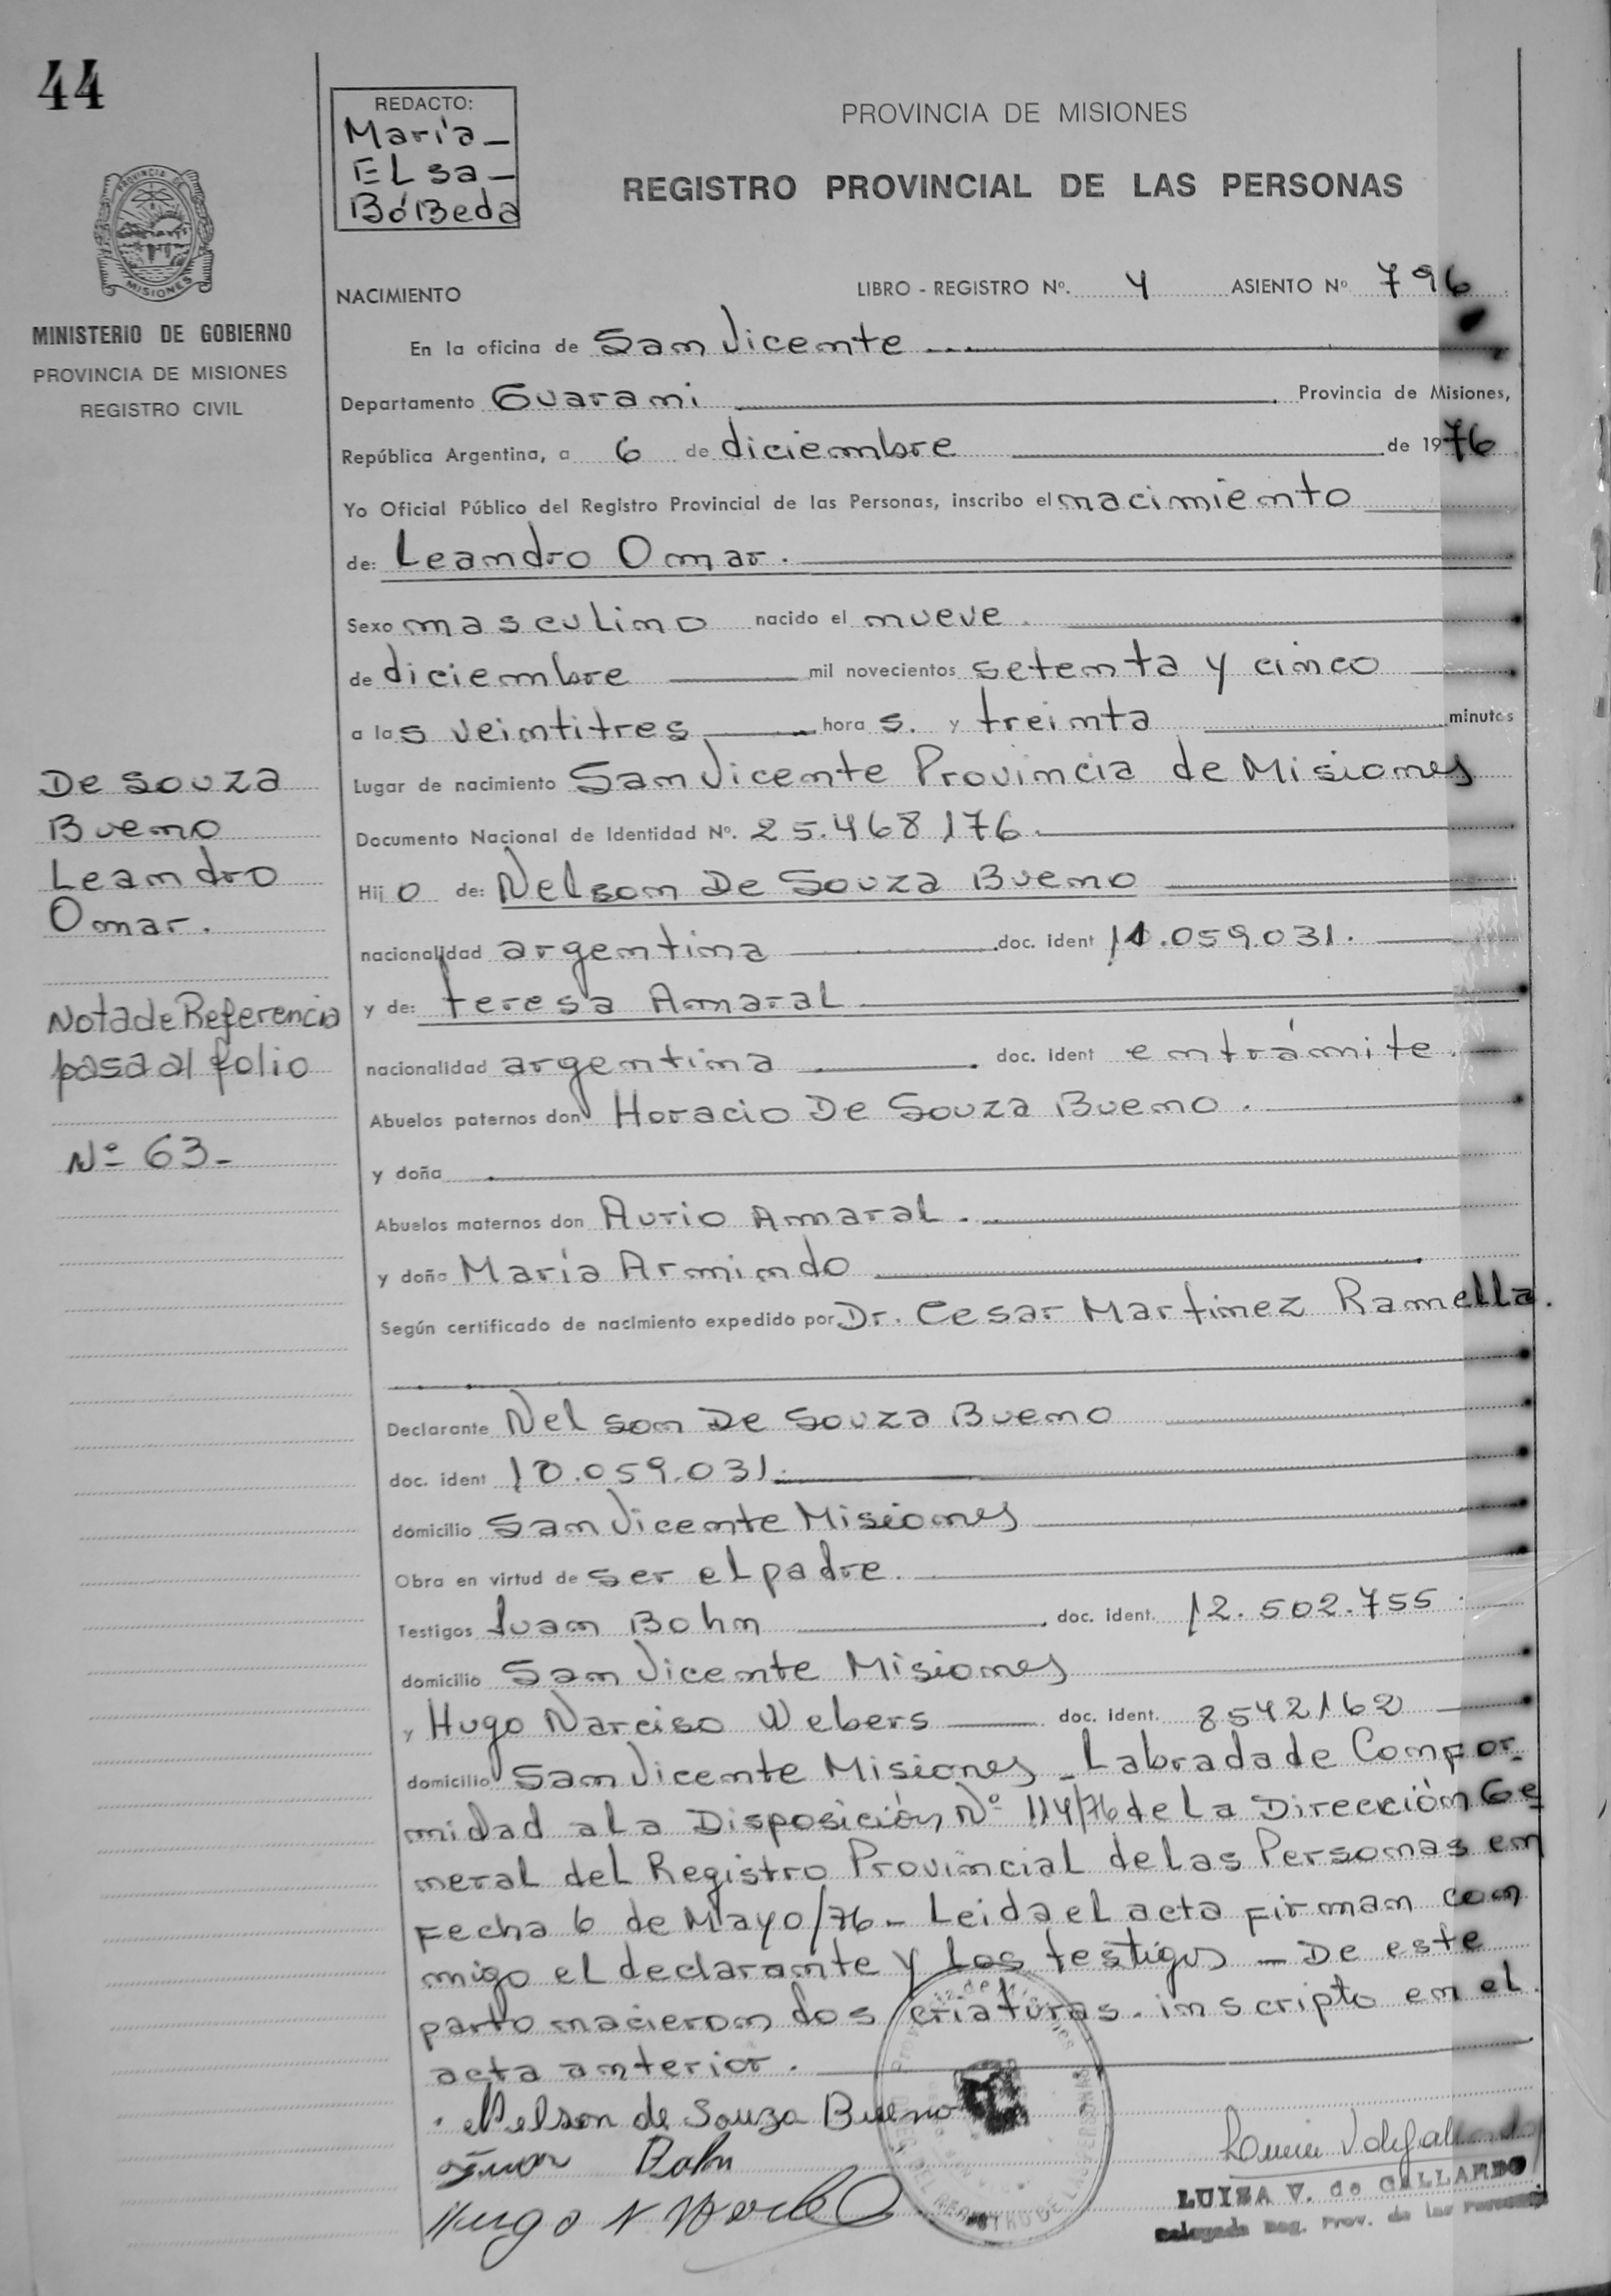 44
REDACTO:
María -
ELsa -
BóBeda
PROVINCIA DE MISIONES
REGISTRO PROVINCIAL DE LAS PERSONAS
PROVINCIA DE
MISIONES
MINISTERIO DE GOBIERNO
PROVINCIA DE MISIONES
REGISTRO CIVIL
NACIMIENTO
LIBRO - REGISTRO Nº. 4 ASIENTO Nº 796
En la oficina de San Vicente
Departamento Guaraní Provincia de Misiones,
República Argentina, a 6 de diciembre de 1976
Yo Oficial Público del Registro Provincial de las Personas, inscribo el nacimiento
de: Leandro Omar.
Sexo masculino nacido el nueve.
de diciembre mil novecientos setenta y cinco
a las veintitres horas. y treinta minutos
Lugar de nacimiento San Vicente Provincia de Misiones
Documento Nacional de Identidad Nº. 25.468176.
Hijo de: Nelson De Souza Bueno
nacionalidad argentina doc. ident 10.059.031.
y de: teresa Amaral
nacionalidad argentina doc. ident en trámite.
Abuelos paternos don Horacio De Souza Bueno.
y doña
Abuelos maternos don Aurio Amaral.
y doña María Armindo
Según certificado de nacimiento expedido por Dr. Cesar Martinez Ramella.
Declarante Nelson De Souza Bueno
doc. ident 10.059.031.
domicilio San Vicente Misiones
Obra en virtud de ser el padre.
Testigos Juan Bohn doc. ident. 12.502.755.
domicilio San Vicente Misiones
y Hugo Narciso Webers doc. ident. 8542162
domicilio San Vicente Misiones - Labrada de Confor-
midad a La Disposición Nº 114/76 de La Dirección Ge
neral del Registro Provincial de las Personas en
Fecha 6 de Mayo/76 - Leida el acta firman con
migo el declarante y los testigos - De este
parto nacieron dos criaturas. inscripto en el
acta anterior.
De souza
Bueno
Leandro
Omar.
Nota de Referencia
pasa al folio
Nº 63-
Nelson de Souza Bueno
Juan Bohn
Hugo N
LUISA V. de GALLARDO
Delegada Reg. Prov. de las Personas